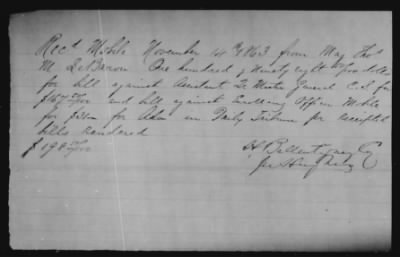 Recd Mobile November 14th 1863 from Maj Thos
M LeBaron One hundred & Ninety eight /100 dolls
for bill against Assistant Qr Master General C.S. for
and bill against Enrolling Office Mobile
for for Adv in Daily Tribune for receipted
bills rendered
$198 /100
H Ballentyne & Co